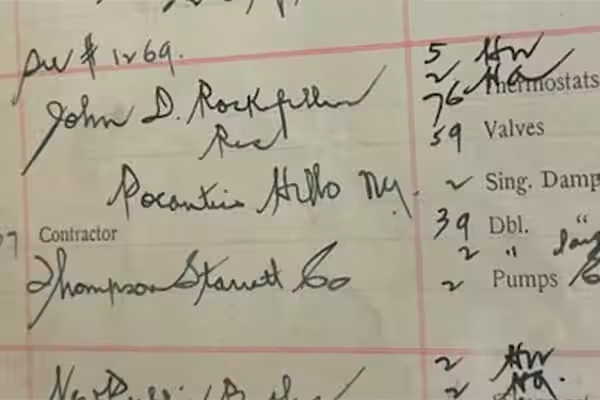 # 1269.
John D. Rockfeller
Res
Pocantico Hills N.Y.
Contractor
Thompson Starrett Co
5 HW
2 HA
76 Thermostats
59 Valves
2 Sing. Damp
39 Dbl. "
2 "
2 Pumps
2 HW
2